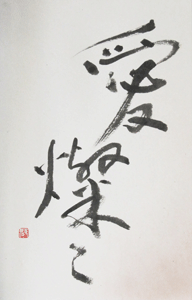 愛燦々